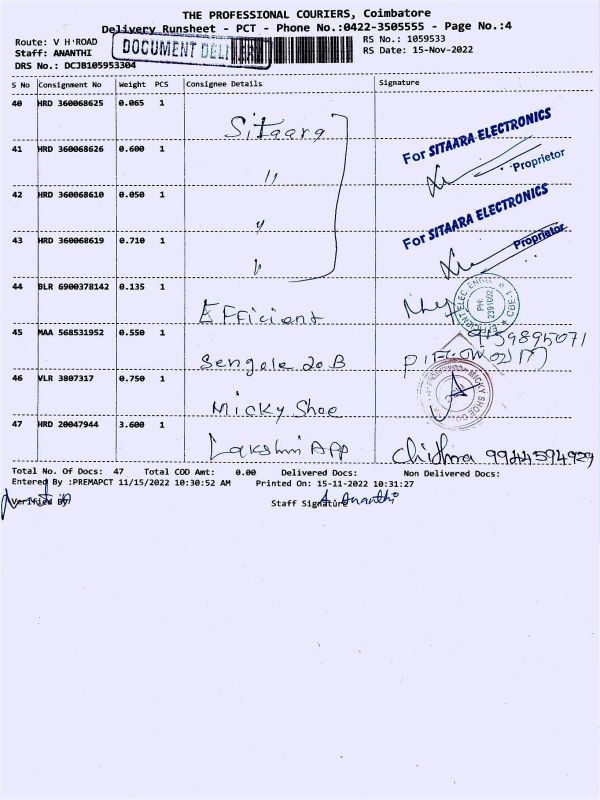 THE PROFESSIONAL COURIERS, Coimbatore
Delivery Runsheet - PCT - Phone No.:0422-3505555 - Page No.:4
Route: V H ROAD
DOCUMENT DELI
RS No.: 1059533
Staff: ANANTHI
RS Date: 15-Nov-2022
DRS No.: DCJB105953304
S No Consignment No Weight PCS Consignee Details Signature
40 HRD 360068625 0.065 1 Sitaara
For SITAARA ELECTRONICS
Proprietor
41 HRD 360068626 0.600 1 "
42 HRD 360068610 0.050 1 "
For SITAARA ELECTRONICS
Proprietor
43 HRD 360068619 0.710 1 "
44 BLR 6900378142 0.135 1 Efficient
EFFICIENT ELEC ENGG CBE-1
PH: 2391002
45 MAA 568531952 0.550 1 Sengele 20 B
9159895071
46 VLR 3807317 0.750 1 Micky Shoe
MICKY SHOE CO
47 HRD 20047944 3.600 1 Lakshmi APP Chithra 9944594929
Total No. Of Docs: 47 Total COD Amt: 0.00 Delivered Docs: Non Delivered Docs:
Entered By :PREMAPCT 11/15/2022 10:30:52 AM Printed On: 15-11-2022 10:31:27
Verified By
Staff Signature A. Ananthi